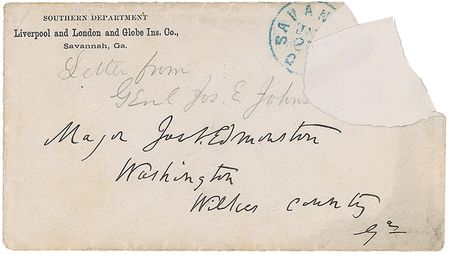 SOUTHERN DEPARTMENT
Liverpool and London and Globe Ins. Co.,
Savannah, Ga.
SAVAN
Letter from
Genl Jos. E. Johns
Major Jos. Edmonston
Washington
Wilkes County
Ga